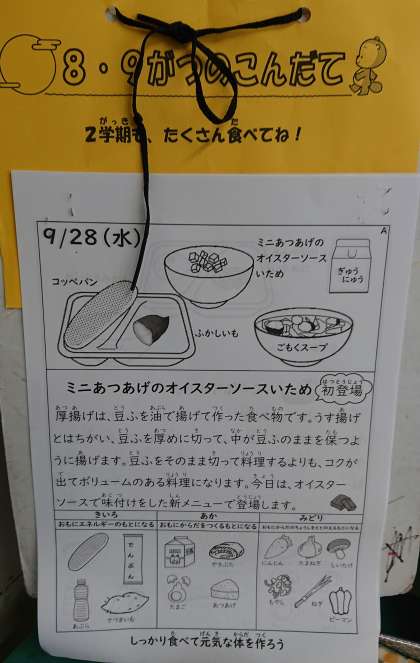 8・9がつのこんだて
2学期も、たくさん食べてね！
9/28(水)
A
ミニあつあげの
オイスターソース
いため
ぎゅう
にゅう
コッペパン
ふかしいも
ごもくスープ
ミニあつあげのオイスターソースいため
初登場
厚揚げは、豆ふを油で揚げて作った食べ物です。うす揚げ
とはちがい、豆ふを厚めに切って、中が豆ふのままを保つよ
うに揚げます。豆ふをそのまま切って料理するよりも、コクが
出てボリュームのある料理になります。今日は、オイスター
ソースで味付けをした新メニューで登場します。
きいろ
あか
みどり
おもにエネルギーのもとになる
おもにからだをつくるもとになる
おもにからだのちょうしをととのえるもとになる
でんぷん
やきぶた
にんじん
たまねぎ
しいたけ
あぶら
さつまいも
たまご
あつあげ
もやし
ねぎ
ピーマン
しっかり食べて元気な体を作ろう